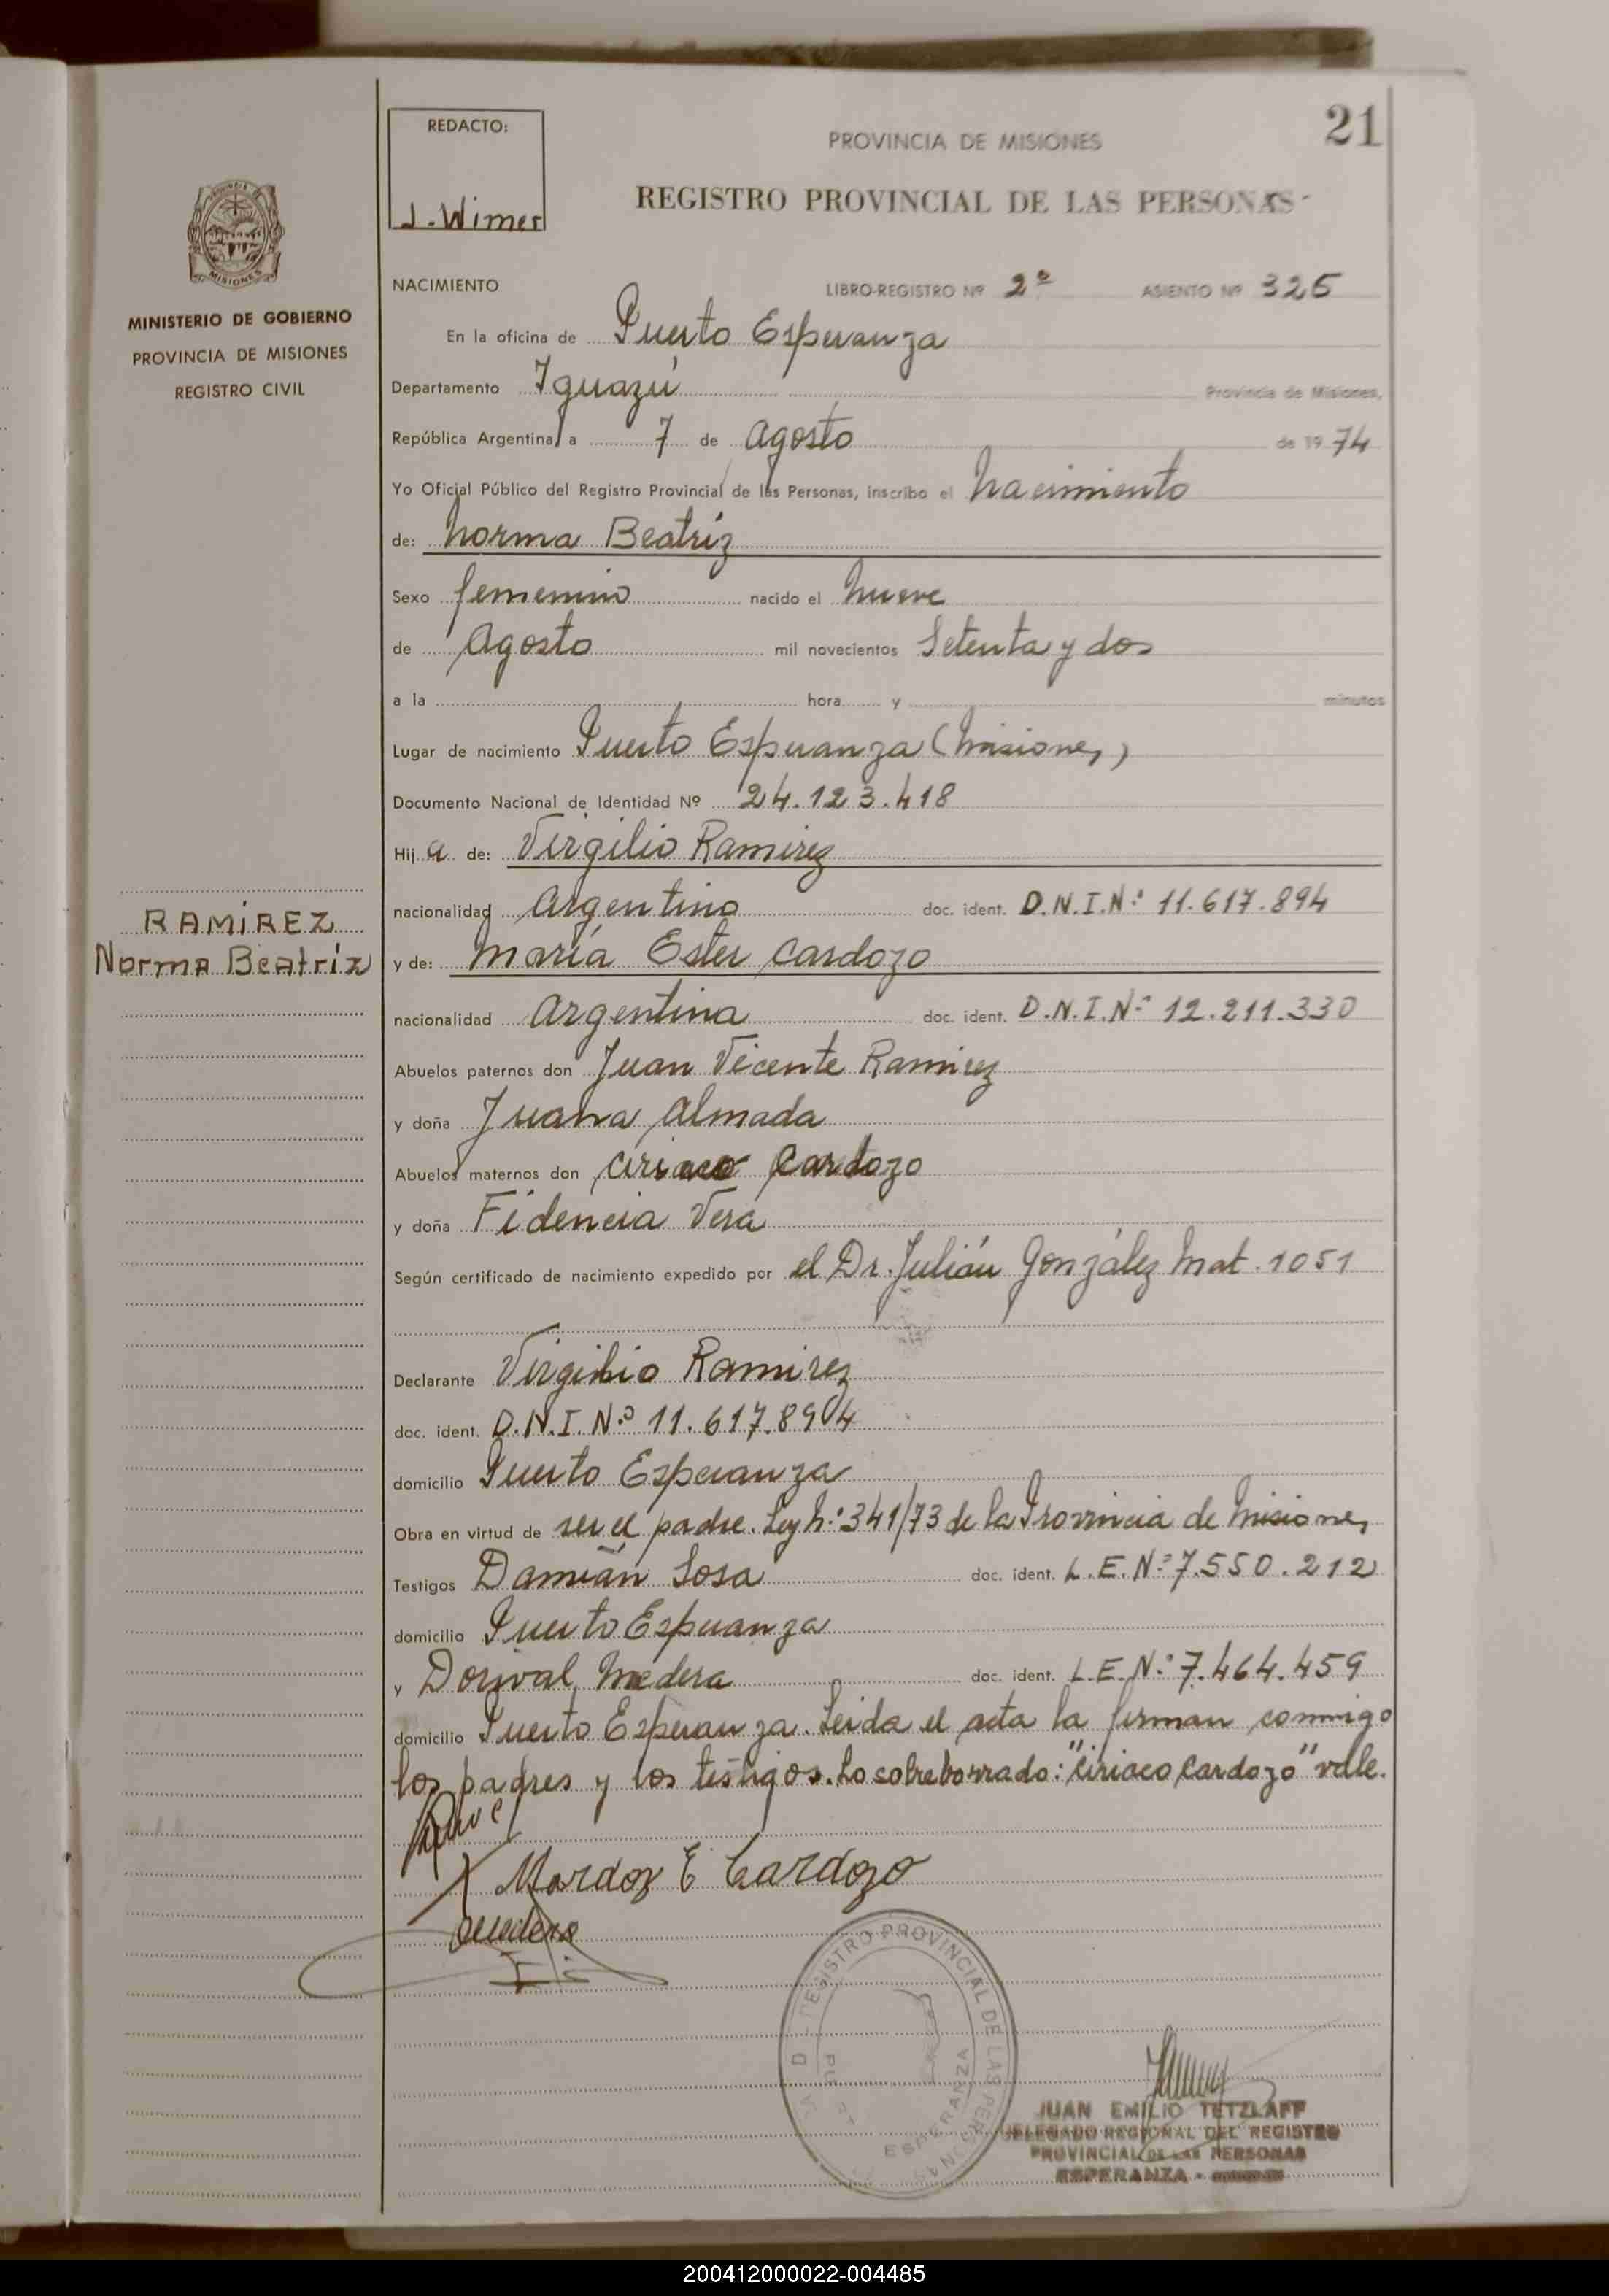 21
REDACTO:
J. Wimer
PROVINCIA DE MISIONES
REGISTRO PROVINCIAL DE LAS PERSONAS
MISIONES
MINISTERIO DE GOBIERNO
PROVINCIA DE MISIONES
REGISTRO CIVIL
NACIMIENTO LIBRO-REGISTRO Nº 2º ASIENTO Nº 325
En la oficina de Puerto Esperanza
Departamento Iguazú Provincia de Misiones,
República Argentina, a 7 de Agosto de 1974
Yo Oficial Público del Registro Provincial de las Personas, inscribo el Nacimiento
de: Norma Beatríz
Sexo femenino nacido el Nueve
de Agosto mil novecientos Setenta y dos
a la hora y minutos
Lugar de nacimiento Puerto Esperanza (Misiones)
Documento Nacional de Identidad Nº 24.123.418
Hij a de: Virgilio Ramirez
nacionalidad Argentino doc. ident. D.N.I.Nº 11.617.894
RAMIREZ
Norma Beatríz
y de: María Ester Cardozo
nacionalidad Argentina doc. ident. D.N.I.Nº 12.211.330
Abuelos paternos don Juan Vicente Ramirez
y doña Juana Almada
Abuelos maternos don Ciriaco Cardozo
y doña Fidencia Vera
Según certificado de nacimiento expedido por el Dr. Julián González Mat. 1051
Declarante Virgilio Ramirez
doc. ident. D.N.I. Nº 11.617.894
domicilio Puerto Esperanza
Obra en virtud de ser el padre. Ley Nº 341/73 de la Provincia de Misiones
Testigos Damián Sosa doc. ident. L.E. Nº 7.550.212
domicilio Puerto Esperanza
y Dorival Medera doc. ident. L.E. Nº 7.464.459
domicilio Puerto Esperanza. Leida el acta la firman conmigo
los padres y los testigos. Lo sobreborrado: "Ciriaco Cardozo" vale.
E Cardozo
REGISTRO PROVINCIAL DE LAS PERSONAS
ESPERANZA
JUAN EMILIO TETZLAFF
DELEGADO REGIONAL DEL REGISTRO
PROVINCIAL DE LAS PERSONAS
ESPERANZA -
200412000022-004485